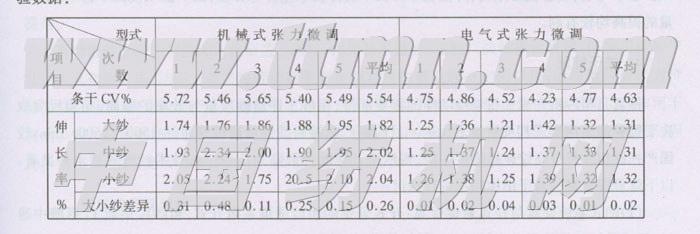 验数据:
型式 机械式张力微调 电气式张力微调
项目 次数 1 2 3 4 5 平均 1 2 3 4 5 平均
条干CV% 5.72 5.46 5.65 5.40 5.49 5.54 4.75 4.86 4.52 4.23 4.77 4.63
伸长率% 大纱 1.74 1.76 1.86 1.88 1.95 1.82 1.25 1.36 1.21 1.42 1.32 1.31
中纱 1.93 2.34 2.00 1.90 1.95 2.02 1.25 1.37 1.24 1.37 1.33 1.31
小纱 2.05 2.24 1.75 20.5 2.10 2.04 1.26 1.38 1.25 1.39 1.32 1.32
大小纱差异 0.31 0.48 0.11 0.25 0.15 0.26 0.01 0.02 0.04 0.03 0.01 0.02
www.ttmn.com
中国纺机网